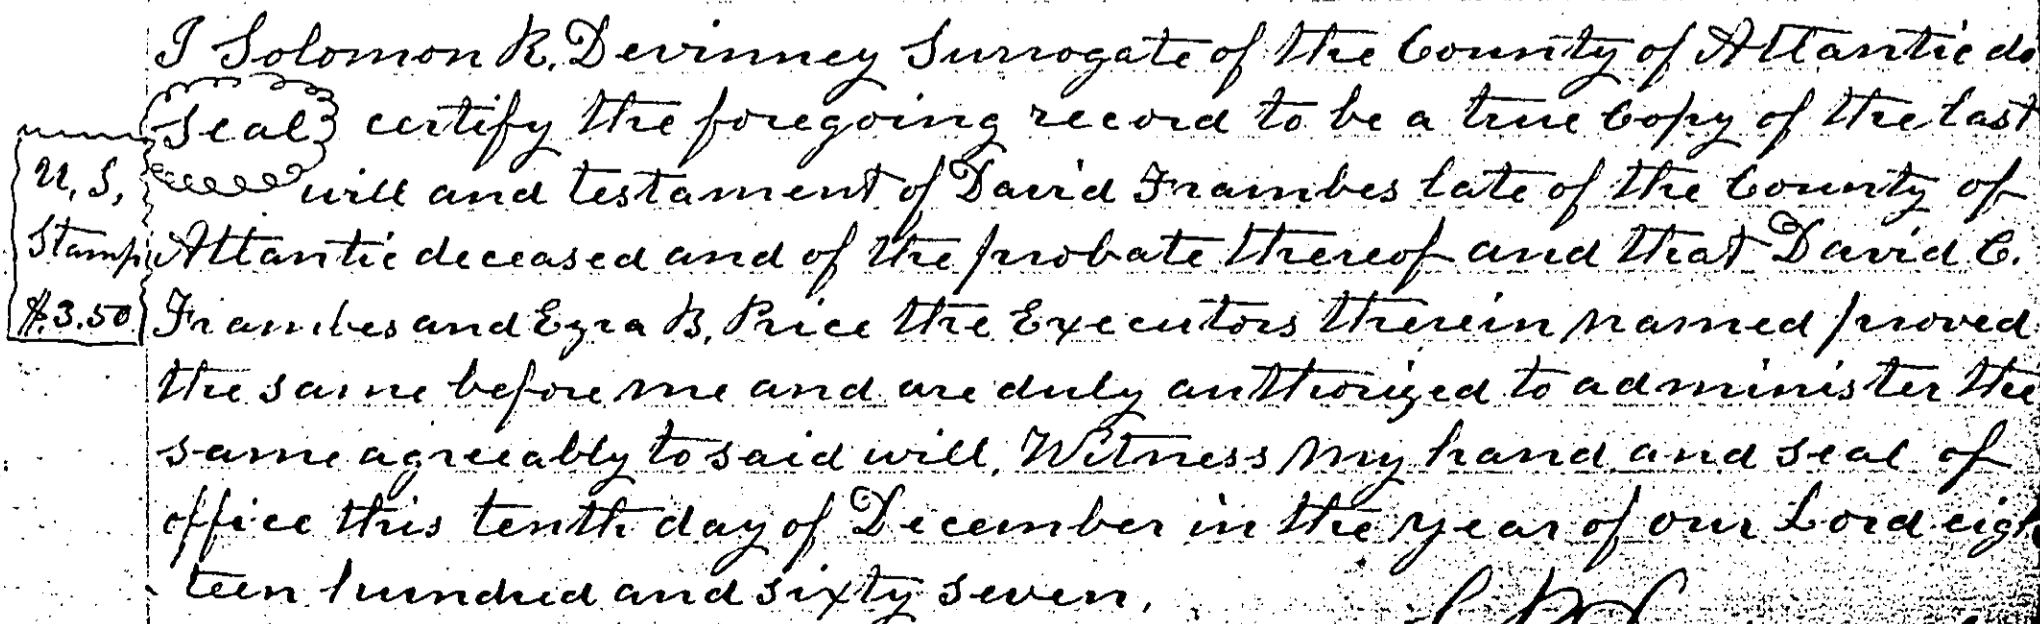 I Solomon R. Devinney Surrogate of the County of Atlantic do
Seal certify the foregoing record to be a true Copy of the last
U. S. will and testament of David Frambes late of the County of
Stamp Atlantic deceased and of the probate thereof and that David C.
$.3.50 Frambes and Ezra B. Price the Executors therein named proved
the same before me and are duly authorized to administer the
same agreeably to said will. Witness my hand and seal of
office this tenth day of December in the year of our Lord eigh
teen hundred and sixty seven.